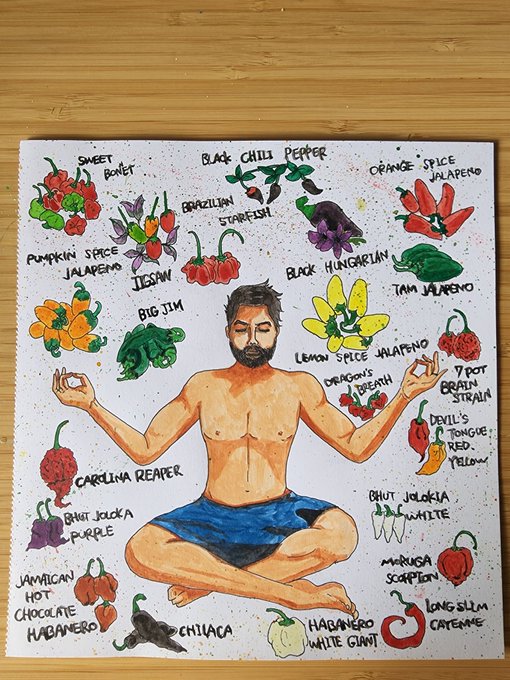 SWEET
BONET
BLACK CHILI PEPPER
ORANGE SPICE
JALAPENO
PUMPKIN SPICE
JALAPENO
JIGSAN
BRAZILIAN
STARFISH
BLACK HUNGARIAN
TAM JALAPENO
BIG JIM
LEMON SPICE JALAPEÑO
DRAGON'S
BREATH
7 POT
BRAIN
STRAIN
DEVIL'S
TONGUE
RED.
YELLOW
CAROLINA REAPER
BHUT JOLOKA
PURPLE
BHUT JOLOKIA
WHITE
MORUGA
SCORPTON
JAMAICAN
HOT
CHOCOLATE
HABANERO
CHILACA
HABANERO
WHITE GIANT
LONG SLIM
CAYENNE